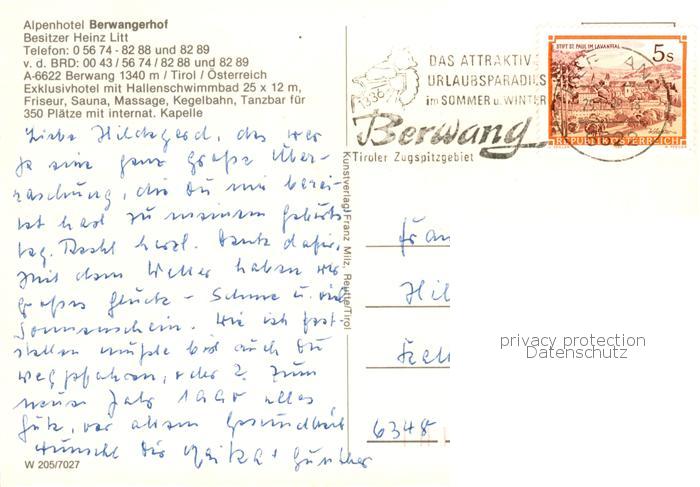 Alpenhotel Berwangerhof
Besitzer Heinz Litt
Telefon: 0 56 74 - 82 88 und 82 89
v. d. BRD: 00 43 / 56 74 / 82 88 und 82 89
A-6622 Berwang 1340 m / Tirol / Österreich
Exklusivhotel mit Hallenschwimmbad 25 x 12 m,
Friseur, Sauna, Massage, Kegelbahn, Tanzbar für
350 Plätze mit internat. Kapelle
Liebe Hildegard, das war
ja eine ganz große Über-
raschung, die Du mir berei-
tet hast zu meinem Geburts-
tag. Recht herzl. Dank dafür.
Mit dem Wetter haben wir
großes Glück - Schnee u. viel
Sonnenschein. Wie ich fest-
stellen mußte bist auch Du
weggefahren, oder ? Zum
neuen Jahr 1990 alles
Gute, vor allem Gesundheit
wünscht Dir + Günther
W 205/7027
Kunstverlag Franz Milz, Reutte/Tirol
DAS ATTRAKTIVE
URLAUBSPARADIES
im SOMMER u. WINTER
Berwang
Tiroler Zugspitzgebiet
STIFT ST. PAUL IM LAVANTTAL
5s
REPUBLIK ÖSTERREICH
Frau
Hil
6348
privacy protection
Datenschutz